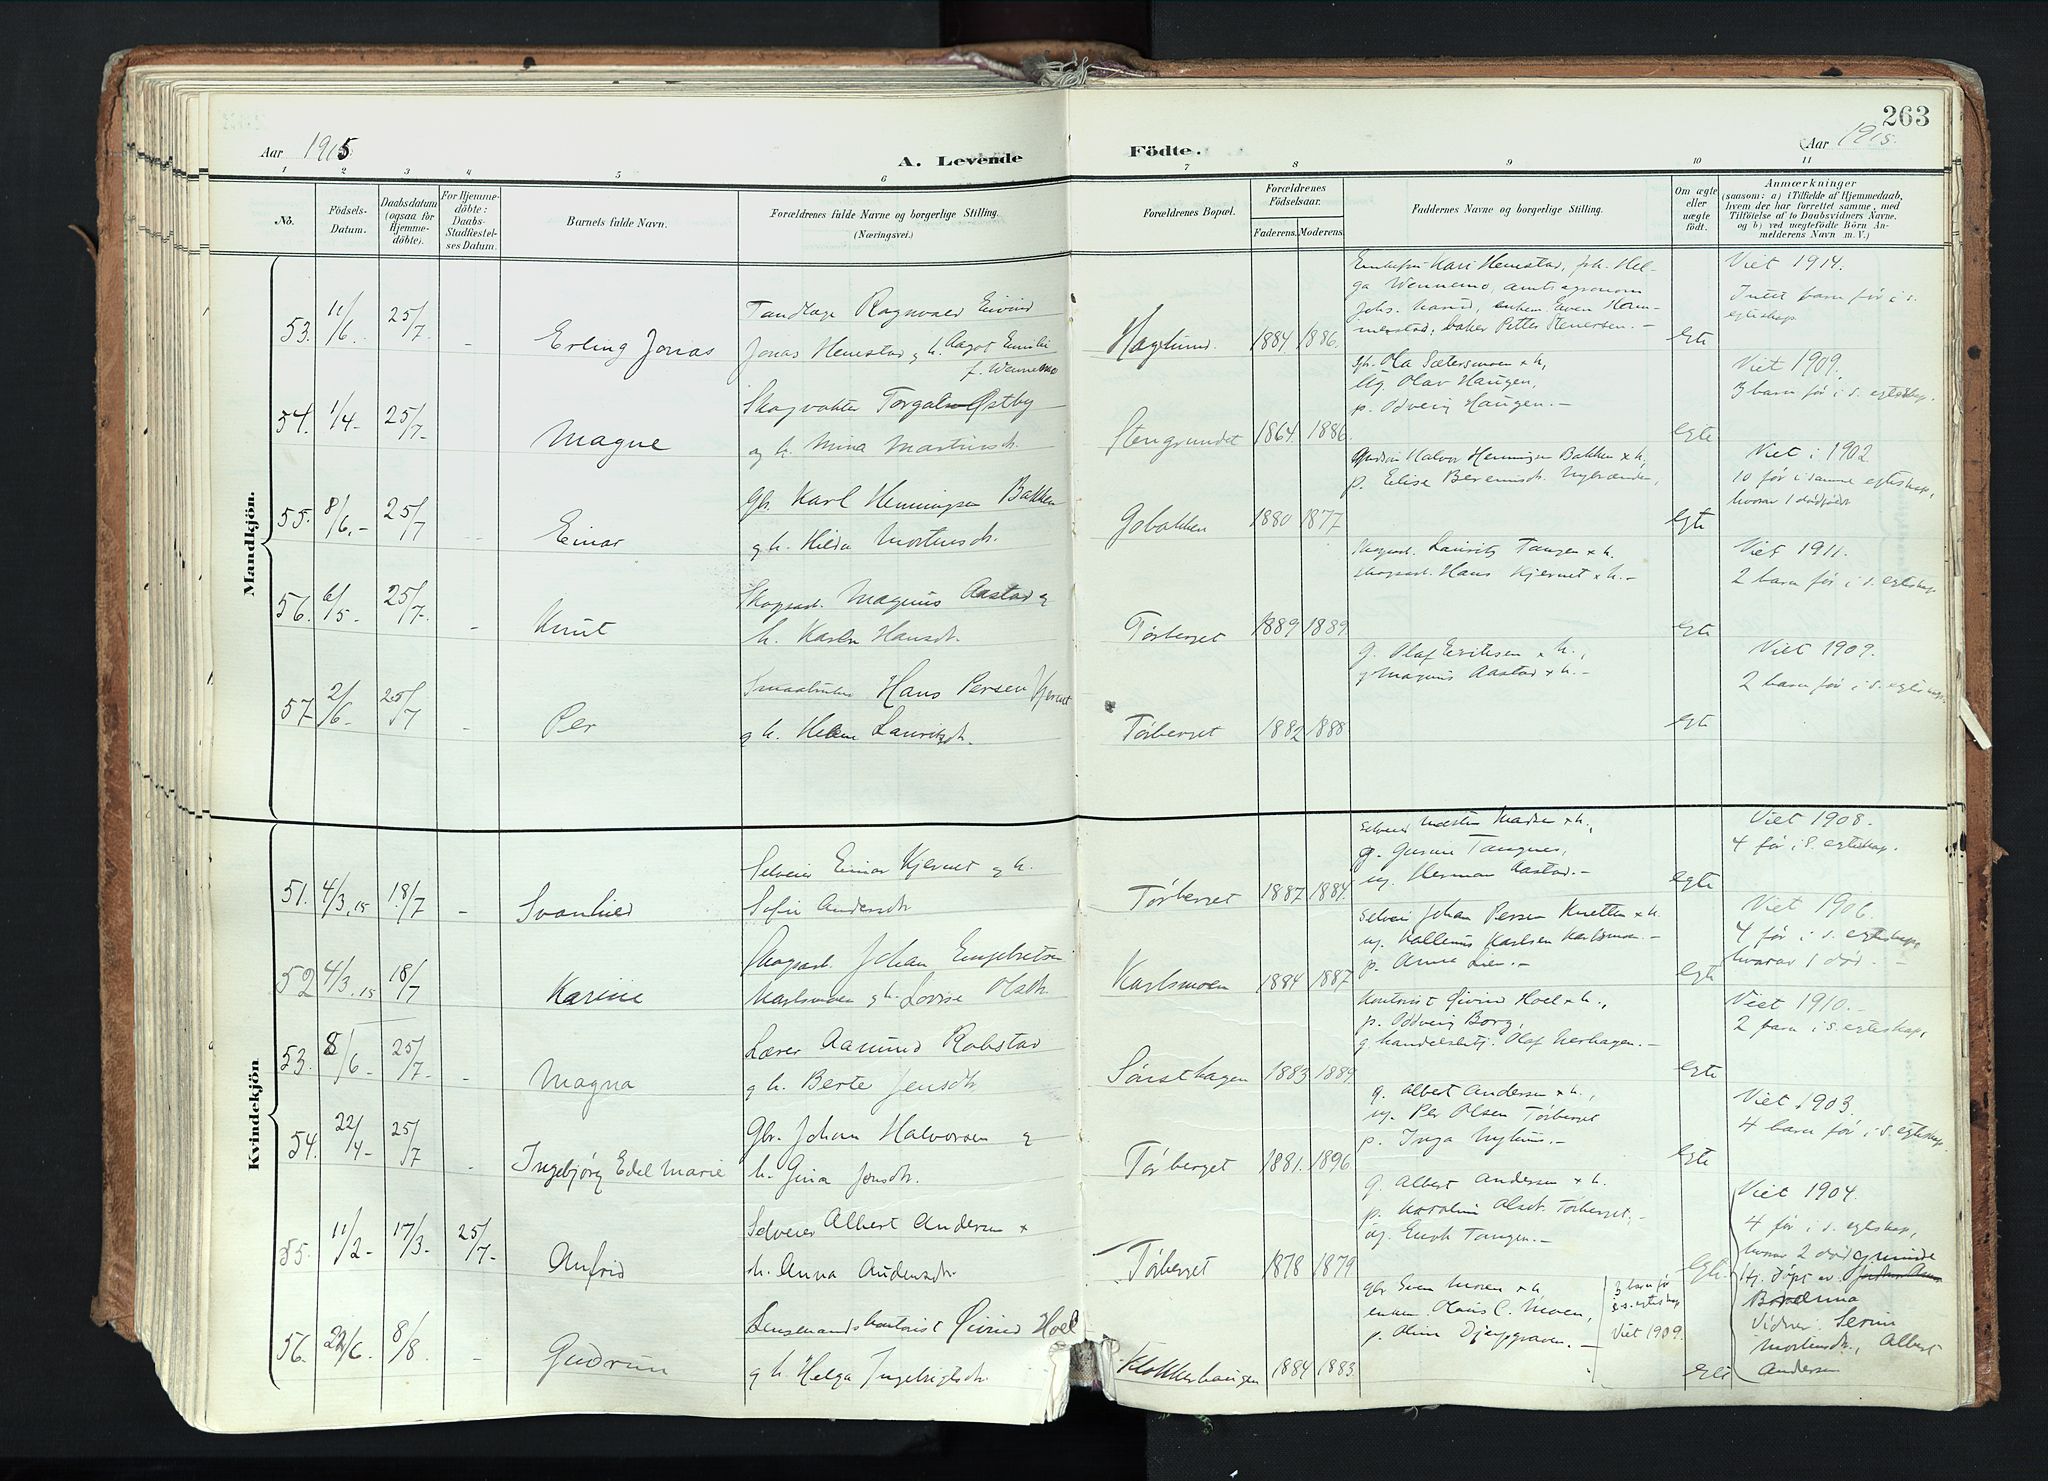 263
Aar 1915
A. Levende
Födte.
Aar 1915.
1 2 3 4 5 6 7 8 9 10 11
No.
Födsels-Datum.
Daabsdatum (ogsaa for Hjemmedöbte).
For Hjemmedöbte: Daabs-Stadfæstelses Datum.
Barnets fulde Navn.
Forældrenes fulde Navne og borgerlige Stilling.
(Næringsvei.)
Forældrenes Bopæl.
Forældrenes Födselsaar.
Faderens. Moderens.
Faddernes Navne og borgerlige Stilling.
Om ægte eller uægte födt.
Anmærkninger
(saasom: a) i Tilfælde af Hjemmedaab, hvem der har forrettet samme, med Tilföielse af to Daabsvidners Navne, og b) ved uægtefödte Börn Anmelderens Navn m. V.)
Mandkjön.
53. 11/6. 25/7. - Erling Jonas
Tandlæge Ragnvald Eivind
Jonas Hemstad g h. Aagot Emilie
f. Wennemo
Haglund. 1884 1886.
Kari Hemstad, frk. Helga Wennemo, amtsagronom
baker Petter Stenersen. -
egte
Viet 1914.
Intet barn før i s. egteskap.
54. 1/4. 25/7. Magne
Skogvokter Torgals Østby
og h. Mina Martinsdr.
Stengrundet 1864. 1886.
gb. Ola Sætersmoen & h,
Ug Olav Haugen,
p. Oddveig Haugen. -
egte
Viet 1909.
3 barn før i s. egteskap.
55. 8/6. - 25/7 - Einar
Gbr. Karl Henningsen Bakken
g h. Hilda Mortensdr.
Gobakken 1880 1877
Halvor Henningsen Bakken & h,
p. Elise
egte
Viet i 1902
10 før i samme egteskap,
hvorav 1 dødfødt
56. 6/5. 25/7. - Knut
Skogsarb. Magnus Aastad g
h. Karen Hansdr.
Tørberget 1889 1889.
Skogsarb. Laurits Tangen & h.
skogsarb. Hans Kjernet & h. -
egte
Viet 1911.
2 barn før i s. egteskap
57. 2/6. 25/7 - Per
Smaabruker Hans Persen Kjernet
g h. Helene Lauritsdr.
Tørberget 1882 1888
g. Olaf Eriksen & h.,
g Magnus Aastad & h. -
egte
Viet 1909.
2 barn før i s. egteskap.
Kvindekjön
51. 4/3.15 18/7 - Svanhild
Selveier Einar Kjernet g h.
Sofie Andersdr.
Tørberget 1887 1884.
selveier Morten Madsen & h.,
g. Gunnar Tangnes,
ug. Herman Aastad. -
egte
Viet 1908.
4 før i s. egteskap.
52 4/3.15 18/7 Karine
Skogsarb. Johan Engebretsen
Karlsmoen g h. Lovise Olsdr.
Karlsmoen 1884 1887
selveier Johan Persen Knetten & h.
ug. Kallenius Karlsen Karlsmoen. -
p. Anna Lien. -
egte
Viet 1906.
4 før i s. egteskap,
hvorav 1 død. -
53. 8/6 - 25/7 - - Magna
Lærer Aasmund Robstad
g h. Berte Jensdr.
Sønsthagen 1883 1889.
kontorist Øivind Hoel & h.,
p. Oddveig Borg,
g. handelsbtj. Olaf Nerhagen. -
egte
Viet 1910. -
2 barn i s. egteskap,
54. 22/4 - 25/7 - Ingebjörg Edel Marie
Gbr. Johan Halvorsen g
h. Gina Jonsdr.
Tørberget 1881. 1896
g. Albert Andersen & h.,
ug. Per Olsen Tørberget
p. Inga Nyhus. -
egte
Viet 1903.
4 barn før i s. egteskap.
55. 11/2 - 17/3. 25/7 - Anfrid
Selveier Albert Andersen &
h. Anna Andersdr.
Tørberget 1878 1879
g. Albert Andersen & h.
p. Karoline Olsdr. Tørberget, -
ug. Enok Tangen. -
Egte.
Viet 1904.
4 før i s. egteskap,
hvorav 2 død
Hj. døpt av
Vidner: Serine
Mortensdr., Albert
Andersen
56. 22/6. 8/8. - Gudrun
Lensmandskontorist Øivind Hoel
g h. Helga Ingebrigtsdr.
Klokkerhaugen 1884 1883
gbr Even Moen & h.
enkem. Olaus C. Moen,
p. Oline Djupgraven. -
3 barn før
i s. egteskap
Viet 1909.
egte